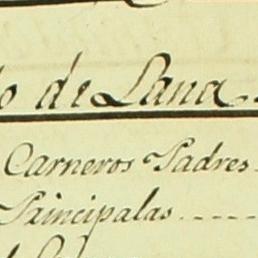 o de Lana.
Carneros Padres
Principalas